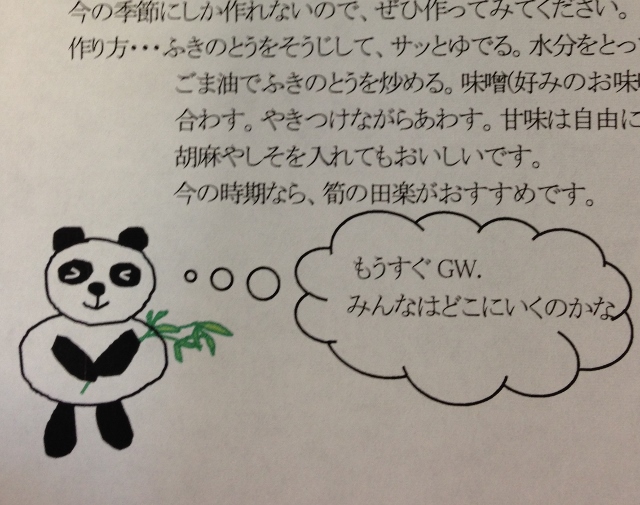 今の季節にしか作れないので、ぜひ作ってみてください。
作り方・・・ふきのとうをそうじして、サッとゆでる。水分をとっ
ごま油でふきのとうを炒める。味噌(好みのお味
合わす。やきつけながらあわす。甘味は自由に
胡麻やしそを入れてもおいしいです。
今の時期なら、筍の田楽がおすすめです。
もうすぐ GW.
みんなはどこにいくのかな